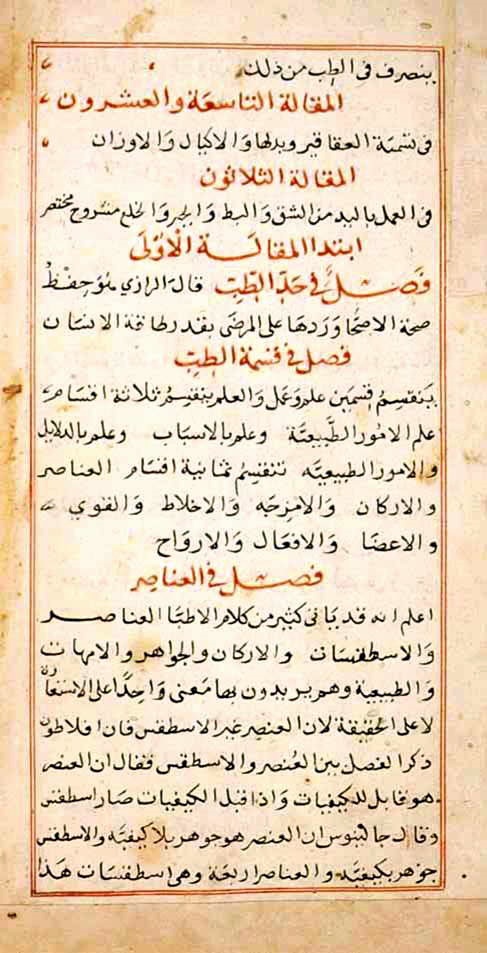 يتصرف في الطب من ذلك
المقالة التاسعة والعشرون
في تسمية العقاقير وبدلها والاكيال والاوزان
المقالة الثلاثون
في العمل باليد من الشق والبط والجبر والخلع مشروح مختصر
ابتدا المقالة الاولى
فصل في حد الطب قال الرازي هو حفظ
صحة الاصحا وردها على المرضى بقدر طاقة الانسان
فصل في قسمة الطب
ينقسم قسمين علم وعمل والعلم ينقسم ثلاثة اقسام
علم الامور الطبيعية وعلم بالاسباب وعلم بالدلايل
والامور الطبيعيه تنقسم ثمانية اقسام العناصر
والاركان والامزجه والاخلاط والقوي
والاعضا والافعال والارواح
فصل في العناصر
اعلم انه قد ياتى في كثير من كلام الاطبا العناصر
والاسطقسات والاركان والجواهر والامهات
والطبيعية وهم يريدون بها معنى واحدا على الاستعارة
لا على الحقيقة لان العنصر غير الاسطقس فان افلاطون
ذكر الفصل بين العنصر والاسطقس فقال ان العنصر
هو قابل للكيفيات واذا قبل الكيفيات صار اسطقس
وقال جالينوس ان العنصر هو جوهر بلا كيفيه والاسطقس
جوهر بكيفيه والعناصر اربعة وهى اسطقسات هذا